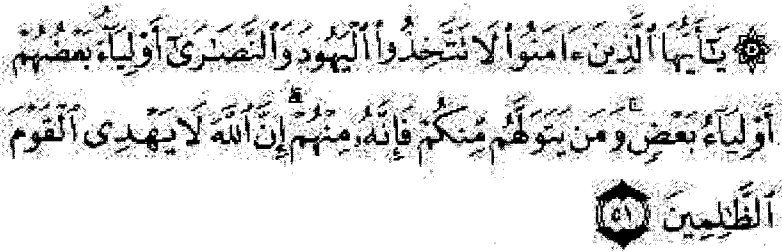 ۞ يَٰٓأَيُّهَا ٱلَّذِينَ ءَامَنُوا۟ لَا تَتَّخِذُوا۟ ٱلْيَهُودَ وَٱلنَّصَٰرَىٰٓ أَوْلِيَآءَ ۘ بَعْضُهُمْ
أَوْلِيَآءُ بَعْضٍ ۚ وَمَن يَتَوَلَّهُم مِّنكُمْ فَإِنَّهُۥ مِنْهُمْ ۗ إِنَّ ٱللَّهَ لَا يَهْدِى ٱلْقَوْمَ
ٱلظَّٰلِمِينَ ٥١